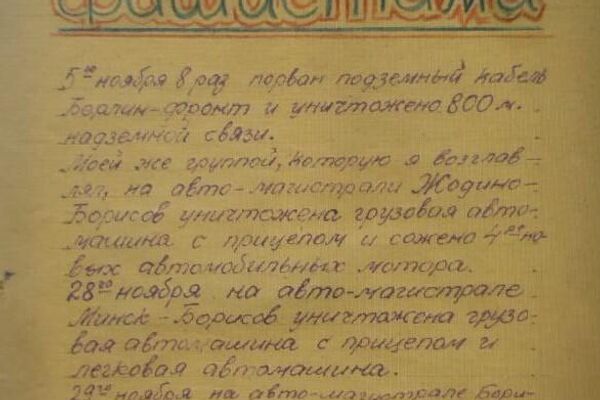 фашистами
5го ноября 8 раз порван подземный кабель
Берлин-фронт и уничтожено 800 м.
надземной связи.
Моей же группой, которую я возглав-
лял, на авто-магистрали Жодино-
Борисов уничтожена грузовая авто-
машина с прицепом и сожено 4ее но-
вых автомобильных мотора.
28го ноября на авто-магистрале
Минск-Борисов уничтожена грузо-
вая автомашина с прицепом и
легковая автомашина.
29го ноября на авто-магистрале Бори-